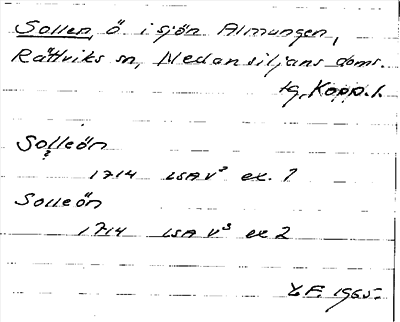 Sollen, ö. i sjön Almungen,
Rättviks sn, Nedansiljans doms.
tg, Kopp. l.
Solleön
?
1714 LSA V³ ex. 1
Solleön
1714 LSA V³ ex 2
F. 1965